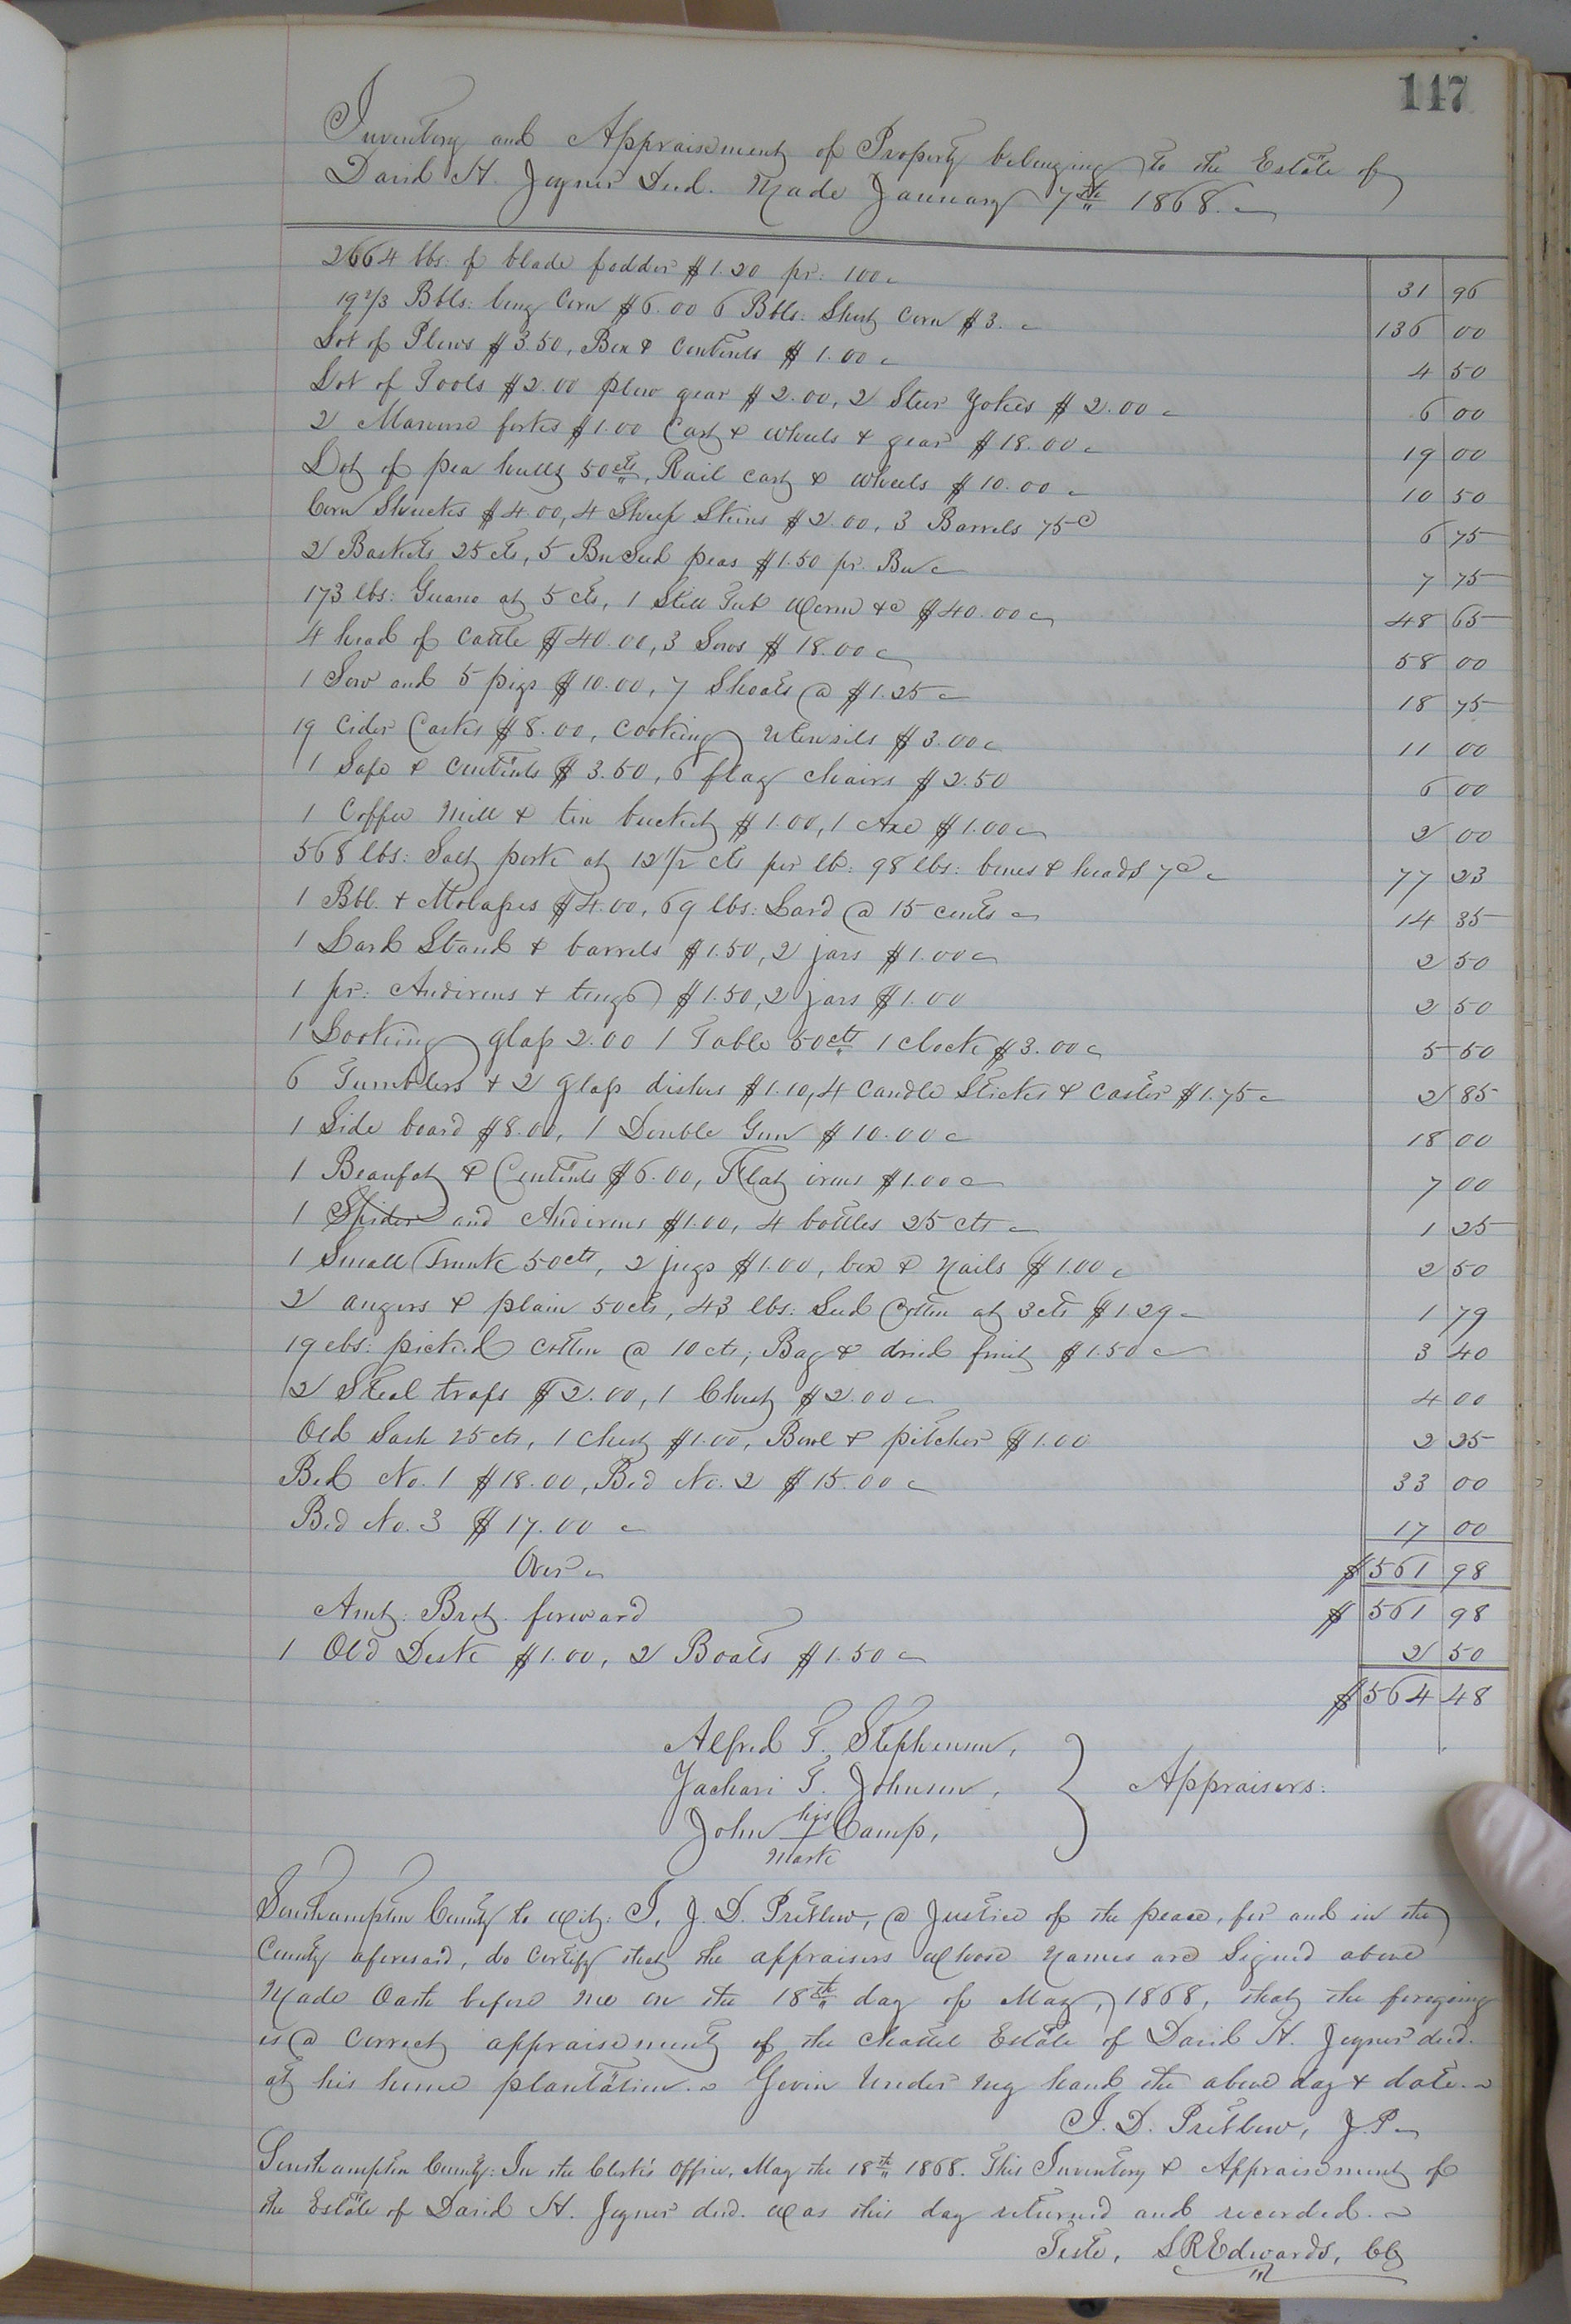 147
Inventory and Appraisement of Property belonging to the Estate of
David H. Joyner Decd. Made January 7th 1868.
2664 lbs: of blade fodder $1.20 pr: 100 31 96
19 2/3 Bbls: long Corn $6.00 6 Bbls: Short Corn $3. 136 00
Lot of Plows $3.50, Box & Contents $1.00 4 50
Lot of Tools $2.00 plow gear $2.00, 2 Steer Yokes $2.00 6 00
2 Manure forks $1.00 Cart & wheels & gear $18.00 19 00
Lot of pea hulls 50cts, Rail cart & wheels $10.00 10 50
Corn Shucks $4.00, 4 Sheep Skins $2.00, 3 Barrels 75c 6 75
2 Baskets 25 cts, 5 Bu Seed peas $1.50 pr. Bu 7 75
173 lbs: Guano at 5 cts, 1 Still Tub Worm &c $40.00 48 65
4 head of Cattle $40.00, 3 Sows $18.00 58 00
1 Sow and 5 pigs $10.00, 7 Shoats @ $1.25 18 75
19 Cider Casks $8.00, Cooking utensils $3.00 11 00
1 Safe & Contents $3.50, 6 flag chairs $2.50 6 00
1 Coffee Mill & tin bucket $1.00, 1 Axe $1.00 2 00
568 lbs: Salt pork at 12 1/2 cts per lb: 98 lbs: bones & heads 7c 77 23
1 Bbl. & Molasses $4.00, 69 lbs: Lard @ 15 cents 14 35
1 Lard Stand & barrels $1.50, 2 jars $1.00 2 50
1 pr: Andirons & tongs $1.50, 2 jars $1.00 2 50
1 Looking glass 2.00 1 Table 50cts 1 clock $3.00 5 50
6 Tumblers & 2 glass dishes $1.10, 4 Candle Sticks & Castor $1.75 2 85
1 Side board $8.00, 1 Double Gun $10.00 18 00
1 Beaufat & Contents $6.00, Flat irons $1.00 7 00
1 Spider and Andirons $1.00, 4 bottles 25 cts 1 25
1 Small Trunk 50cts, 2 jugs $1.00, box & Nails $1.00 2 50
2 augers & plain 50cts, 43 lbs: Seed Cotton at 3cts $1.29 1 79
19 lbs: picked Cotton @ 10 cts, Bag & dried fruit $1.50 3 40
2 Steel traps $2.00, 1 Chest $2.00 4 00
Old Sash 25 cts, 1 Chest $1.00, Bowl & pitcher $1.00 2 25
Bed No. 1 $18.00, Bed No. 2 $15.00 33 00
Bed No. 3 $17.00 17 00
Over $561 98
Amt: Brot. forward $561 98
1 Old Desk $1.00, 2 Boats $1.50 2 50
$564 48
Alfred T. Stephenson,
Zachari T. Johnson, Appraisers.
his
John + Camp,
Mark
Southampton County to wit: I, J. D. Pretlow, a Justice of the peace, for and in the
County aforesaid, do certify that the appraisers whose names are Signed above
Made Oath before me on the 18th day of May, 1868, that the foregoing
is a Correct appraisement of the chattel Estate of David H. Joyner decd.
at his home plantation. Given Under my hand the above day & date.
J. D. Pretlow, J.P.
Southampton County: In the Clerk's Office, May the 18th 1868. This Inventory & Appraisement of
the Estate of David H. Joyner decd. was this day returned and recorded.
Teste, L R Edwards, Clk